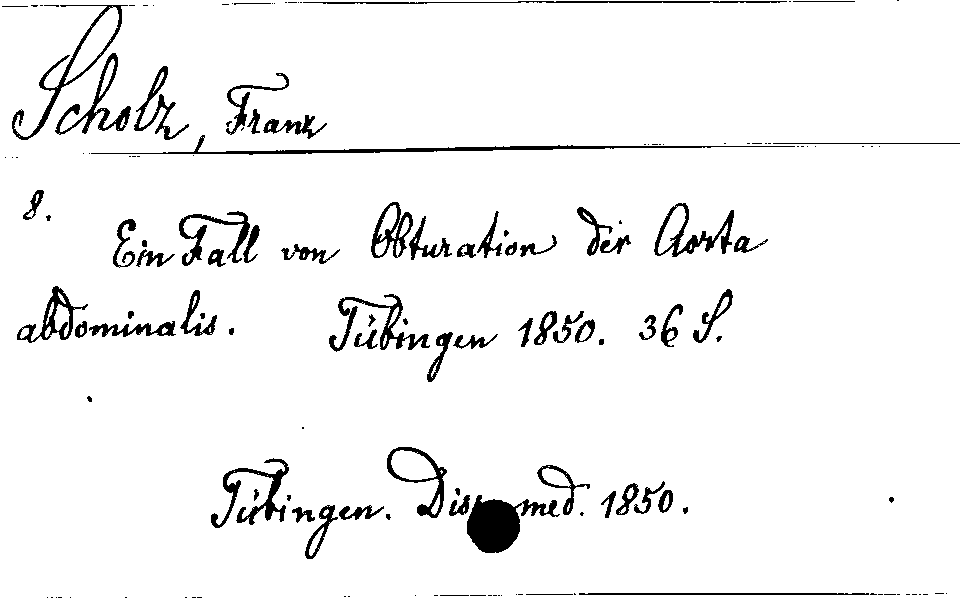 Scholz, Franz
8.
Ein Fall von Obturation der Aorta
abdominalis. Tübingen 1850. 36 S.
Tübingen. Diss. med. 1850.